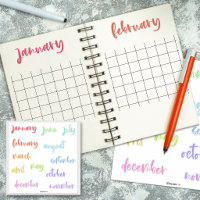 january
february
january june july
february august
march september
april may october
december november
december